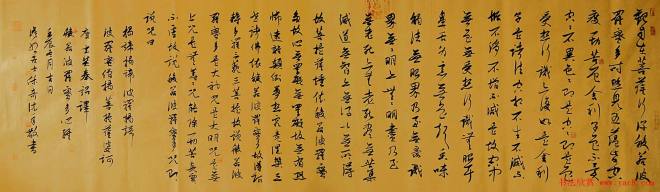 觀自在菩薩行深般若波
羅蜜多時照見五蘊皆空
度一切苦厄舍利子色不異
空空不異色色即是空空即是色
受想行識亦復如是舍利
子是諸法空相不生不滅不
垢不淨不增不減是故空中
無色無受想行識無眼耳鼻
舌身意無色聲香味
觸法無眼界乃至無意識
界無無明亦無無明盡乃至
無老死亦無老死盡無苦集
滅道無智亦無得以無所得
故菩提薩埵依般若波羅蜜
多故心無罣礙無罣礙故無有恐
怖遠離顛倒夢想究竟涅槃三
世諸佛依般若波羅蜜多故得阿
耨多羅三藐三菩提故知般若波
羅蜜多是大神咒是大明咒是無
上咒是無等等咒能除一切苦真實
不虛故說般若波羅蜜多咒即
說咒曰
揭諦揭諦波羅揭諦
波羅僧揭諦菩提薩婆訶
般若波羅蜜多心經
唐三藏奘譯
书法欣赏
www.yac8.com